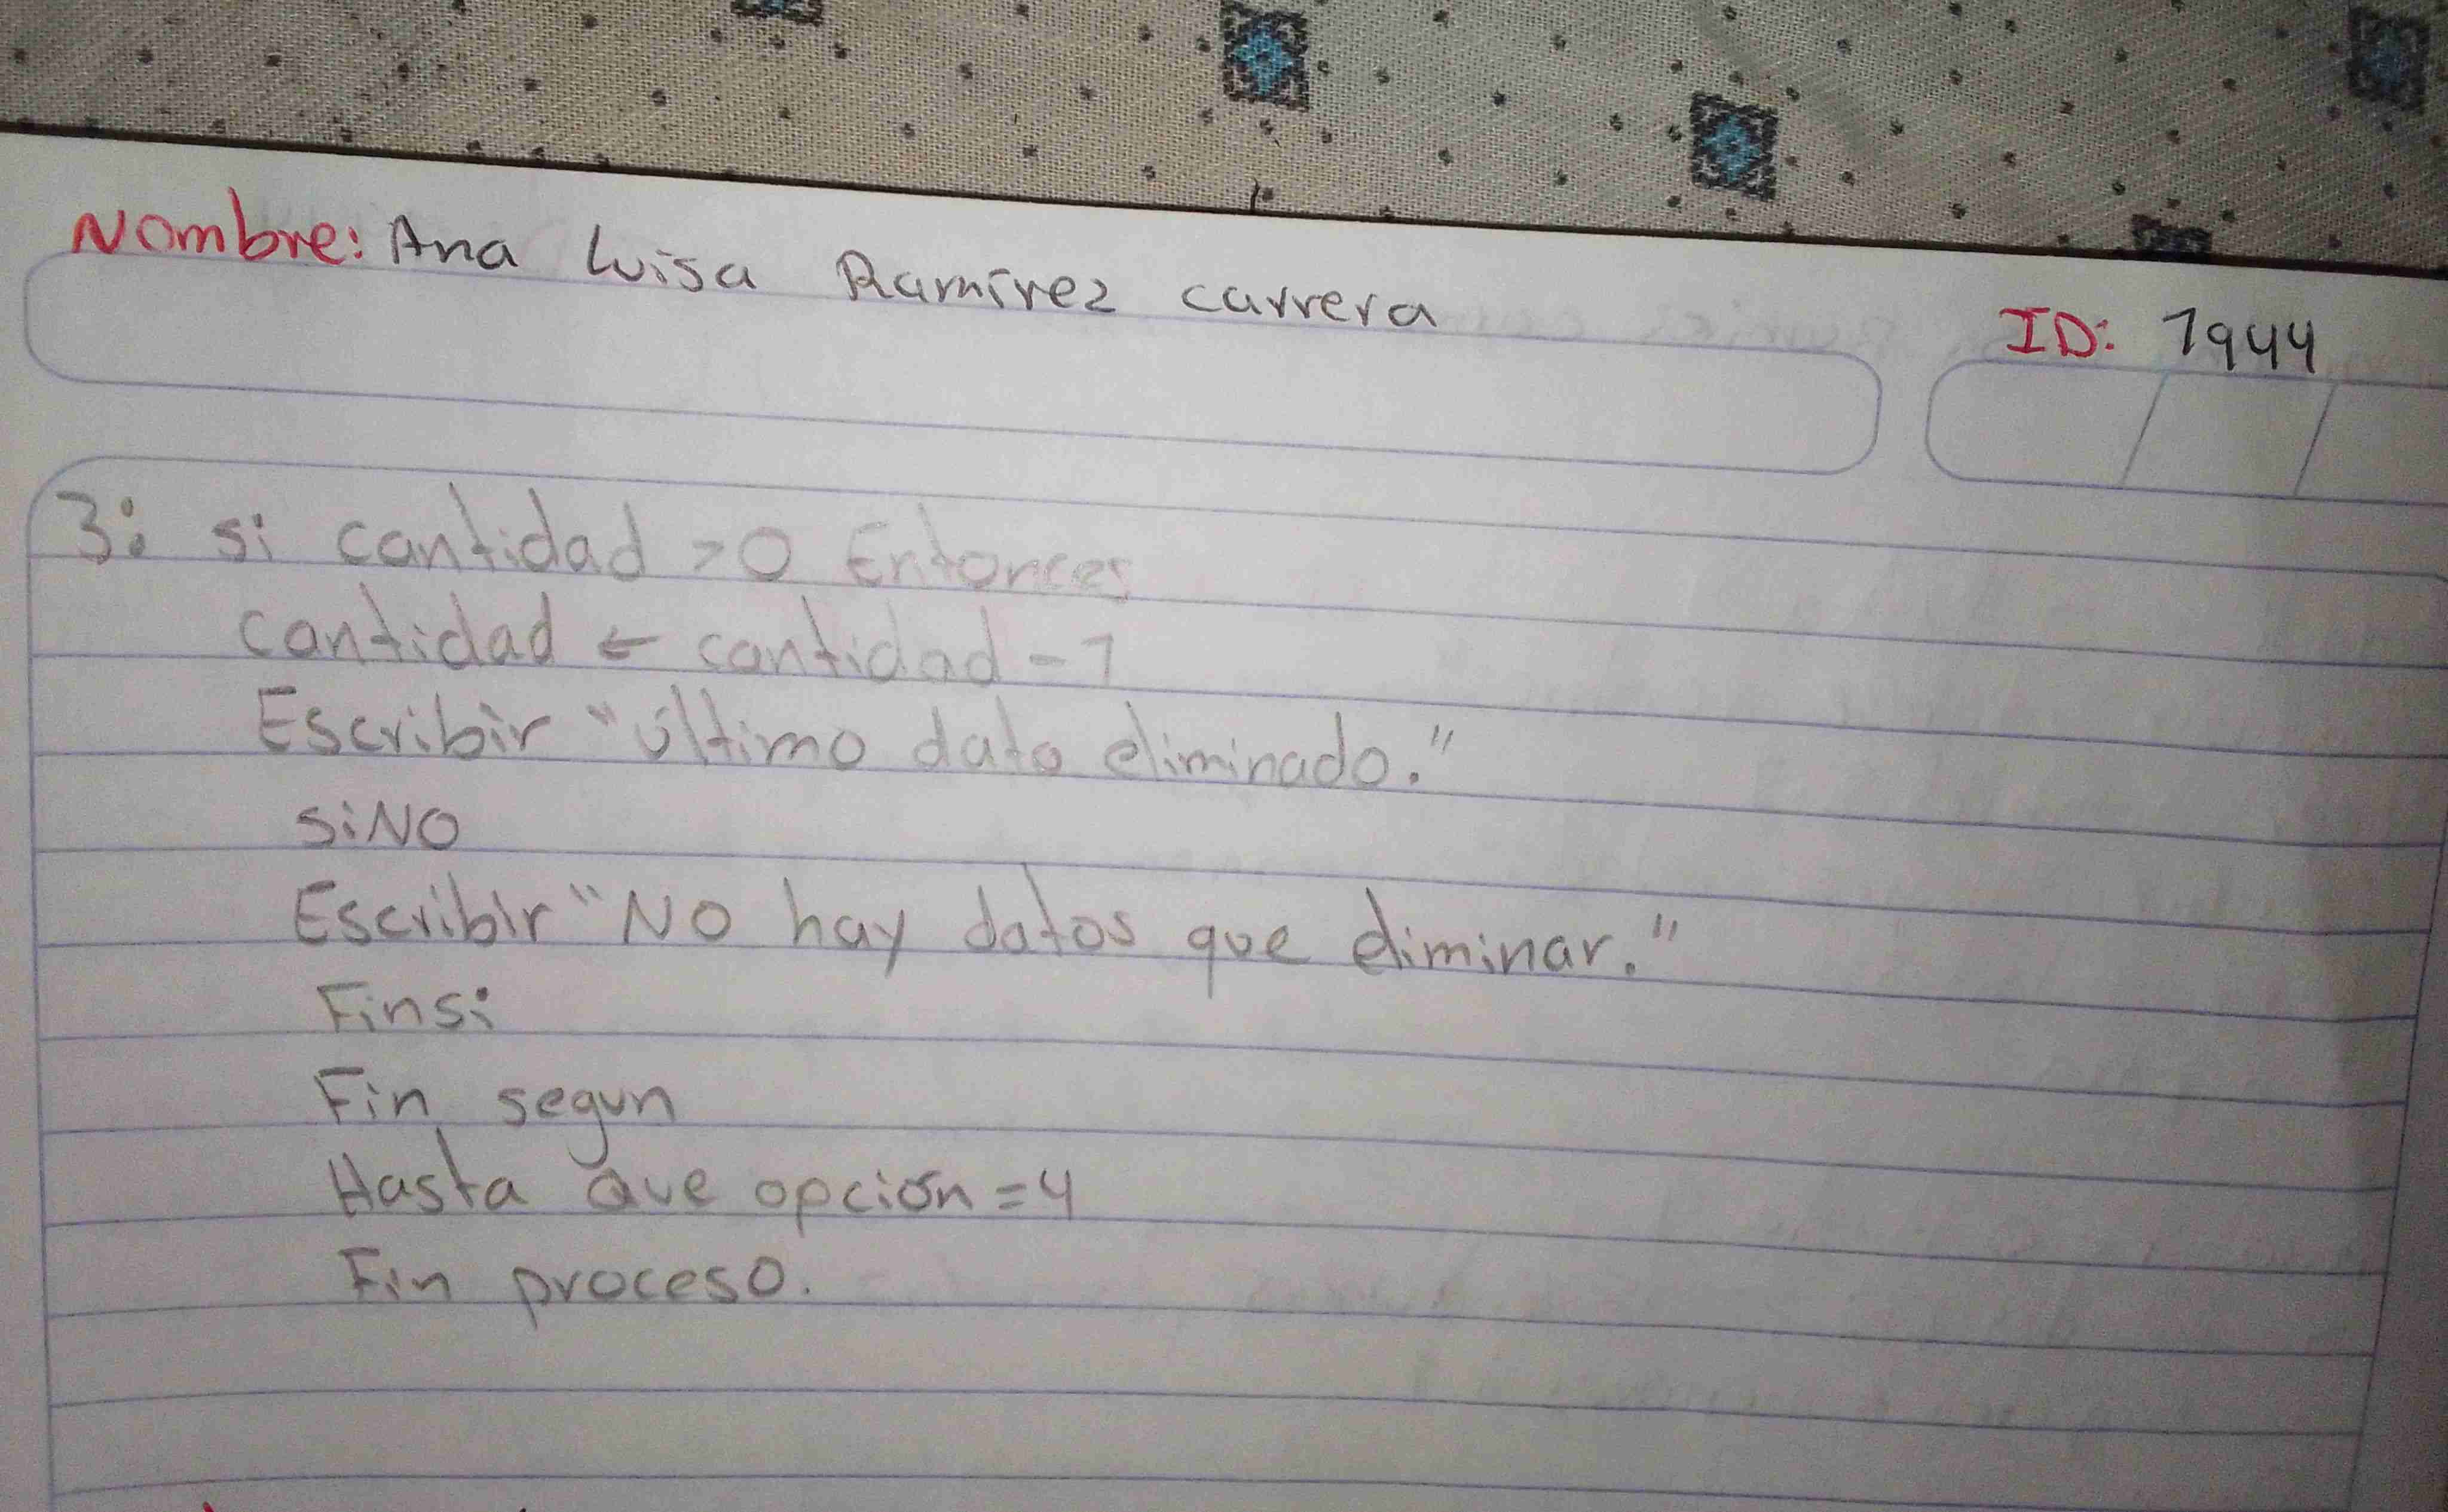 Nombre: Ana Luisa Ramírez carrera
ID: 1944
3: si cantidad >0 Entonces
cantidad ← cantidad -1
Escribir "último dato eliminado."
SiNO
Escribir "NO hay datos que eliminar."
Finsi
Fin segun
Hasta Que opción=4
Fin proceso.